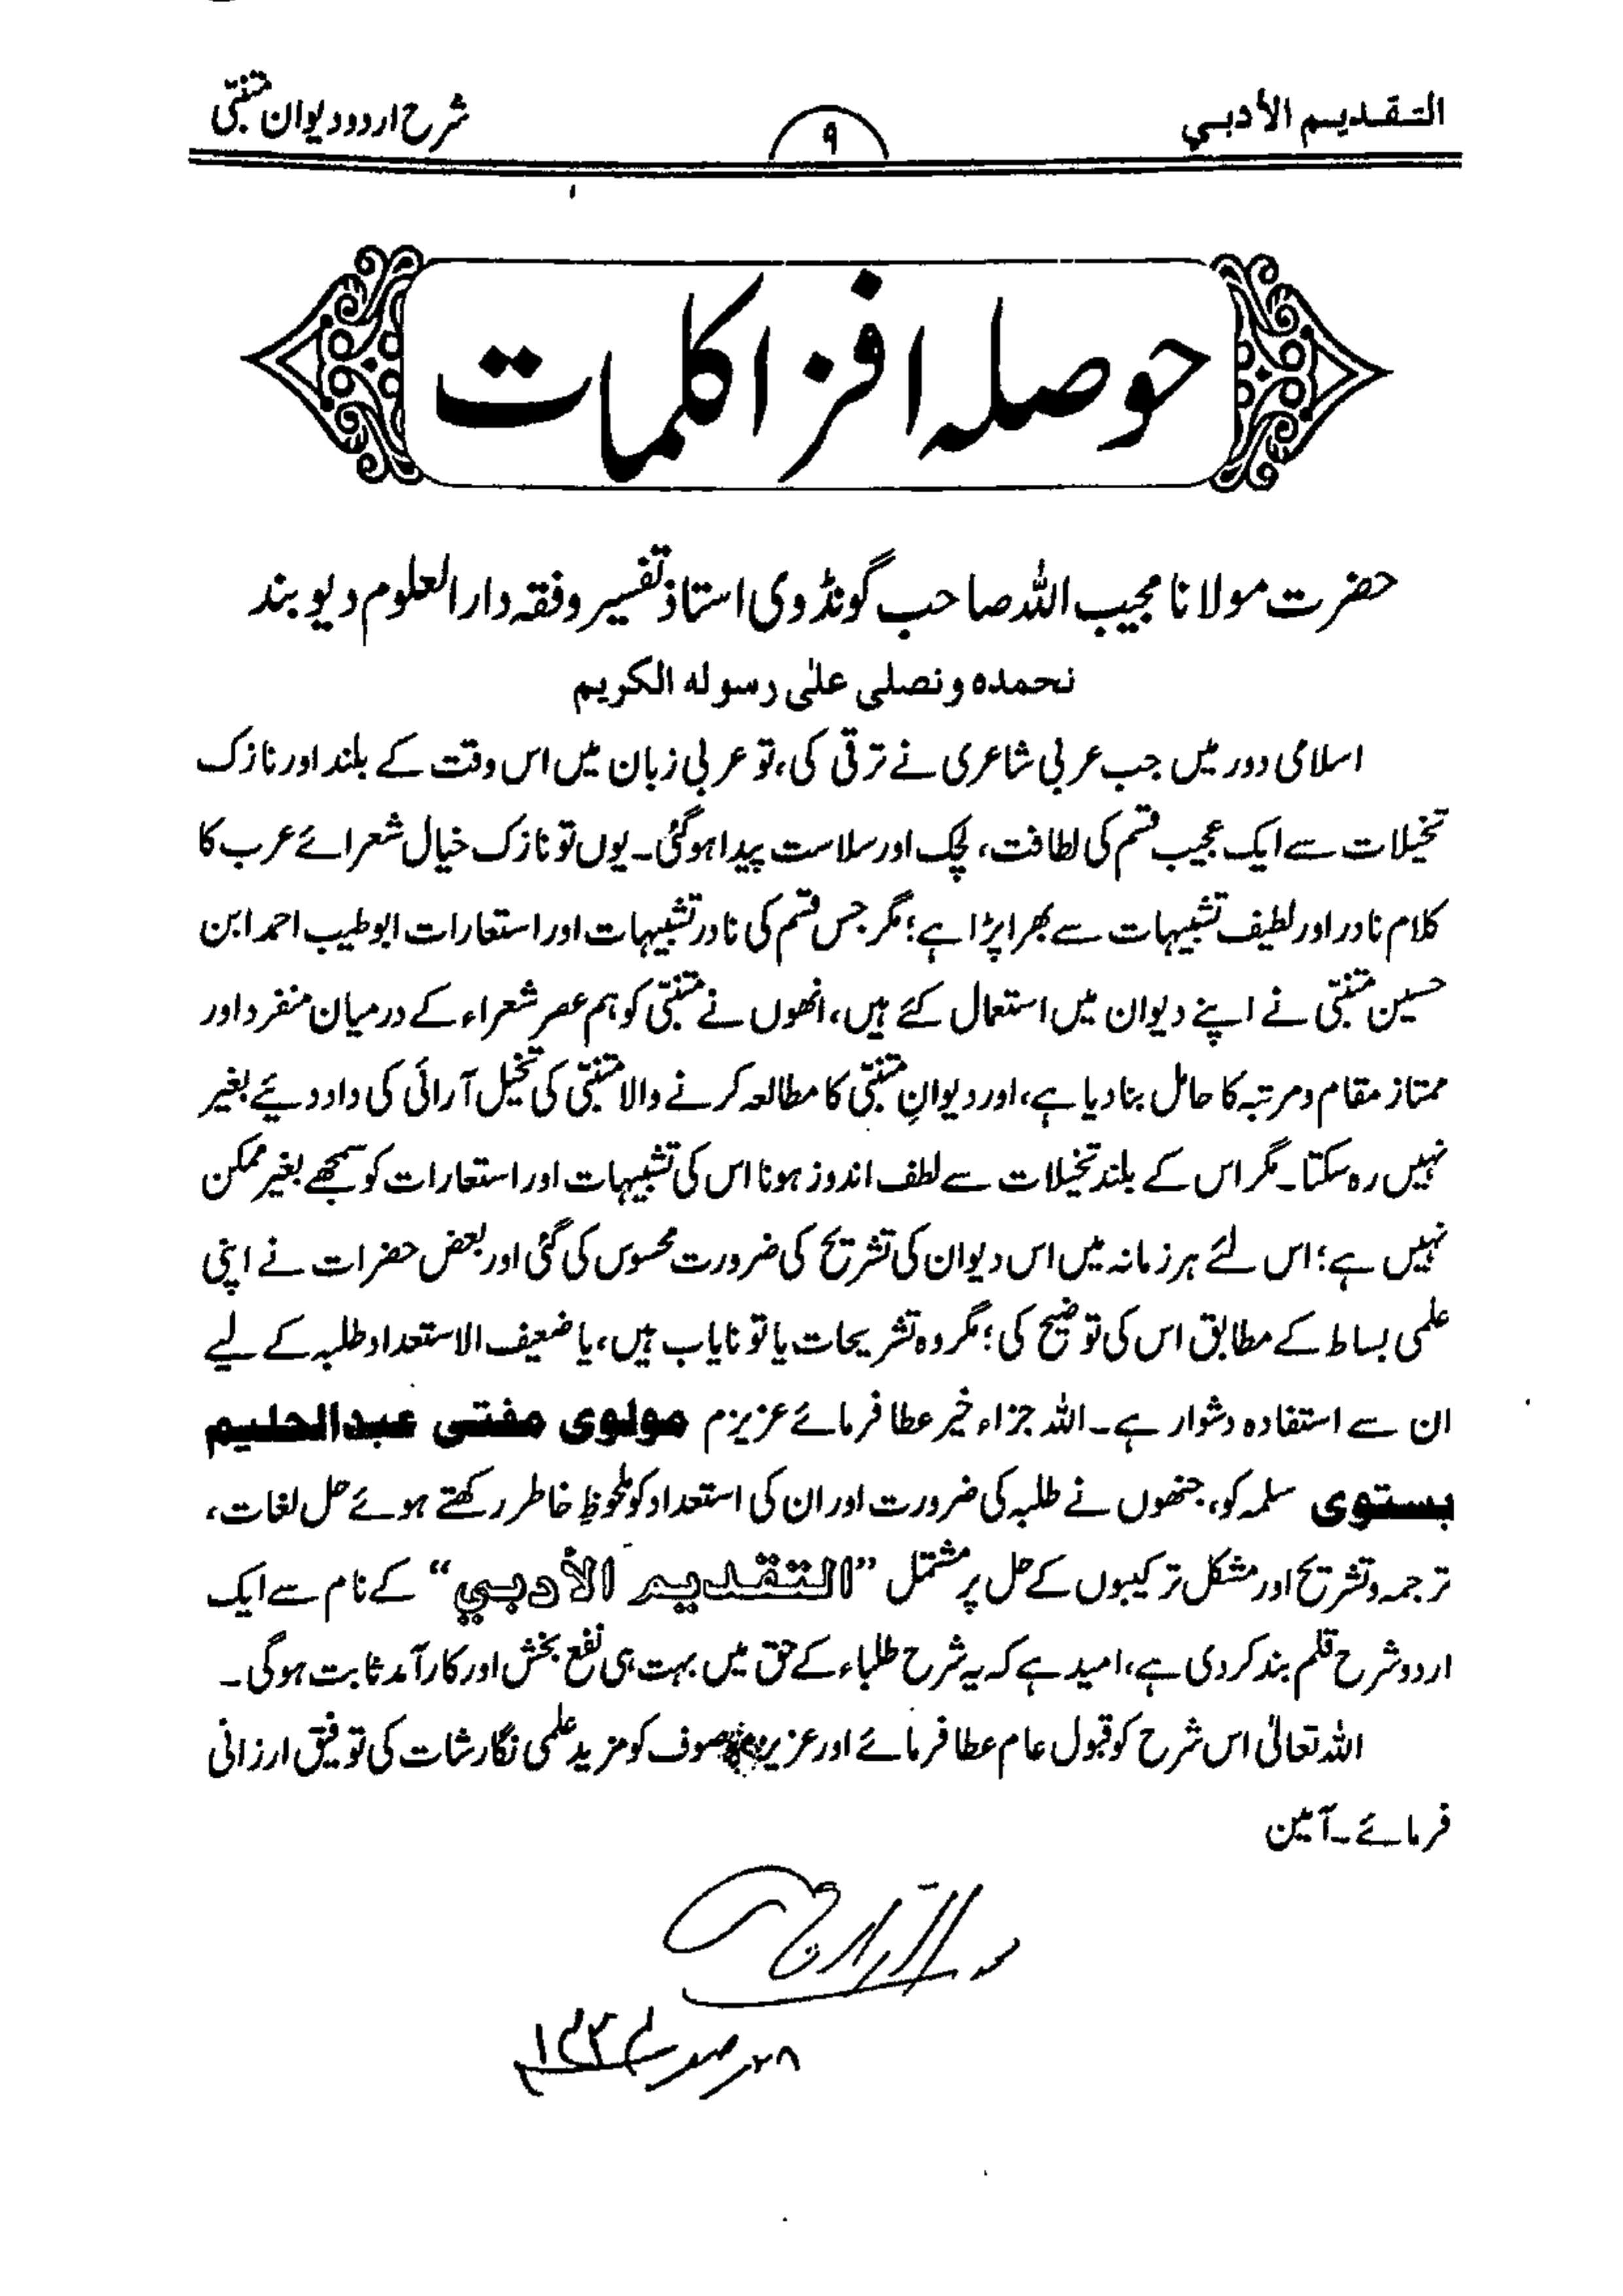 التقديم الأدبي
۹
شرح اردو دیوان متنبّی
حوصلہ افزا کلمات
حضرت مولانا مجیب اللہ صاحب گونڈوی استاذ تفسیر وفقہ دارالعلوم دیوبند
نحمده ونصلی علیٰ رسوله الکریم
اسلامی دور میں جب عربی شاعری نے ترقی کی، تو عربی زبان میں اس وقت کے بلند اور نازک
تخیلات سے ایک عجیب قسم کی لطافت، لچک اور سلاست پیدا ہوگئی۔ یوں تو نازک خیال شعرائے عرب کا
کلام نادر اور لطیف تشبیہات سے بھرا پڑا ہے؛ مگر جس قسم کی نادر تشبیہات اور استعارات ابوطیب احمد ابن
حسین متنبّی نے اپنے دیوان میں استعمال کئے ہیں، انھوں نے متنبّی کو ہم عصر شعراء کے درمیان منفرد اور
ممتاز مقام ومرتبہ کا حامل بنادیا ہے، اور دیوانِ متنبّی کا مطالعہ کرنے والا متنبّی کی تخیل آرائی کی داد دیئے بغیر
نہیں رہ سکتا۔ مگر اس کے بلند تخیلات سے لطف اندوز ہونا اس کی تشبیہات اور استعارات کو سمجھے بغیر ممکن
نہیں ہے؛ اس لئے ہر زمانہ میں اس دیوان کی تشریح کی ضرورت محسوس کی گئی اور بعض حضرات نے اپنی
علمی بساط کے مطابق اس کی توضیح کی؛ مگر وہ تشریحات یا تو نایاب ہیں، یا ضعیف الاستعداد طلبہ کے لیے
ان سے استفادہ دشوار ہے۔ اللہ جزاء خیر عطا فرمائے عزیزم مولوی مفتی عبدالحلیم
بستوی سلمہ کو، جنھوں نے طلبہ کی ضرورت اور ان کی استعداد کو ملحوظِ خاطر رکھتے ہوئے حل لغات،
ترجمہ وتشریح اور مشکل ترکیبوں کے حل پر مشتمل ”التقديم الأدبي“ کے نام سے ایک
اردو شرح قلم بند کردی ہے، امید ہے کہ یہ شرح طلباء کے حق میں بہت ہی نفع بخش اور کارآمد ثابت ہوگی۔
اللہ تعالیٰ اس شرح کو قبول عام عطا فرمائے اور عزیز موصوف کو مزید علمی نگارشات کی توفیق ارزانی
فرمائے۔ آمین